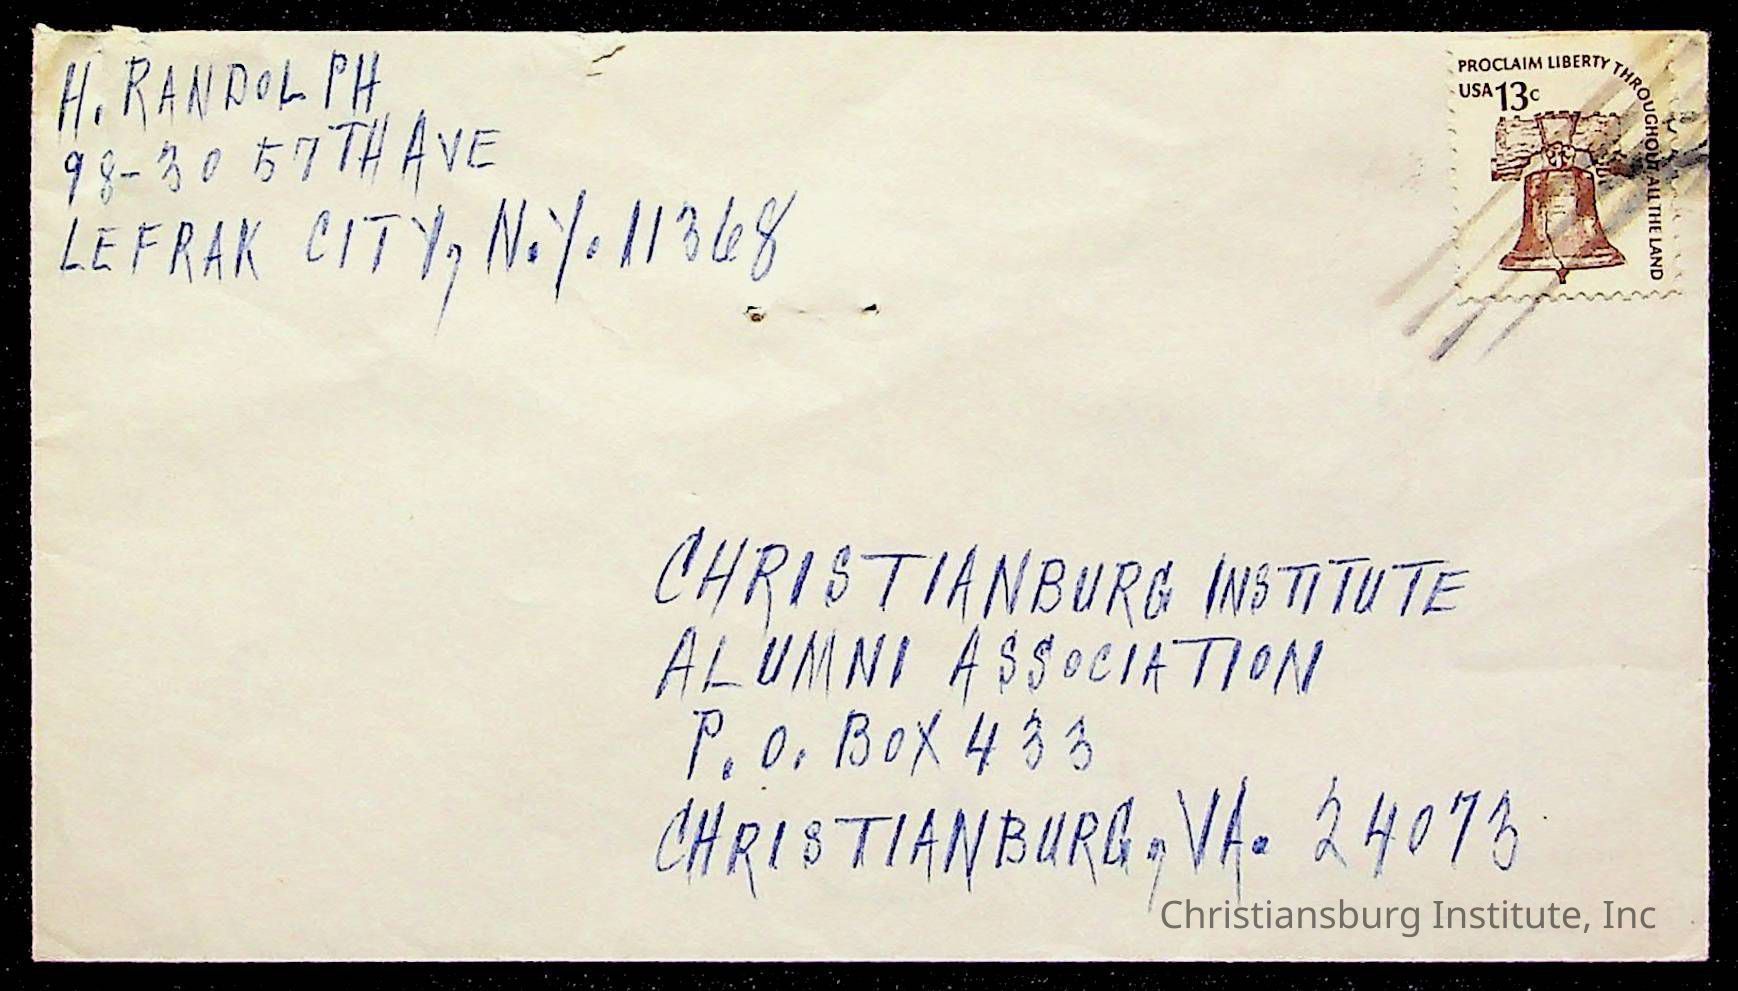 H. RANDOLPH
98-30 57TH AVE
LEFRAK CITY, N.Y. 11368
PROCLAIM LIBERTY THROUGHOUT ALL THE LAND
USA 13c
CHRISTIANBURG INSTITUTE
ALUMNI ASSOCIATION
P. O. BOX 433
CHRISTIANBURG, VA. 24073
Christiansburg Institute, Inc